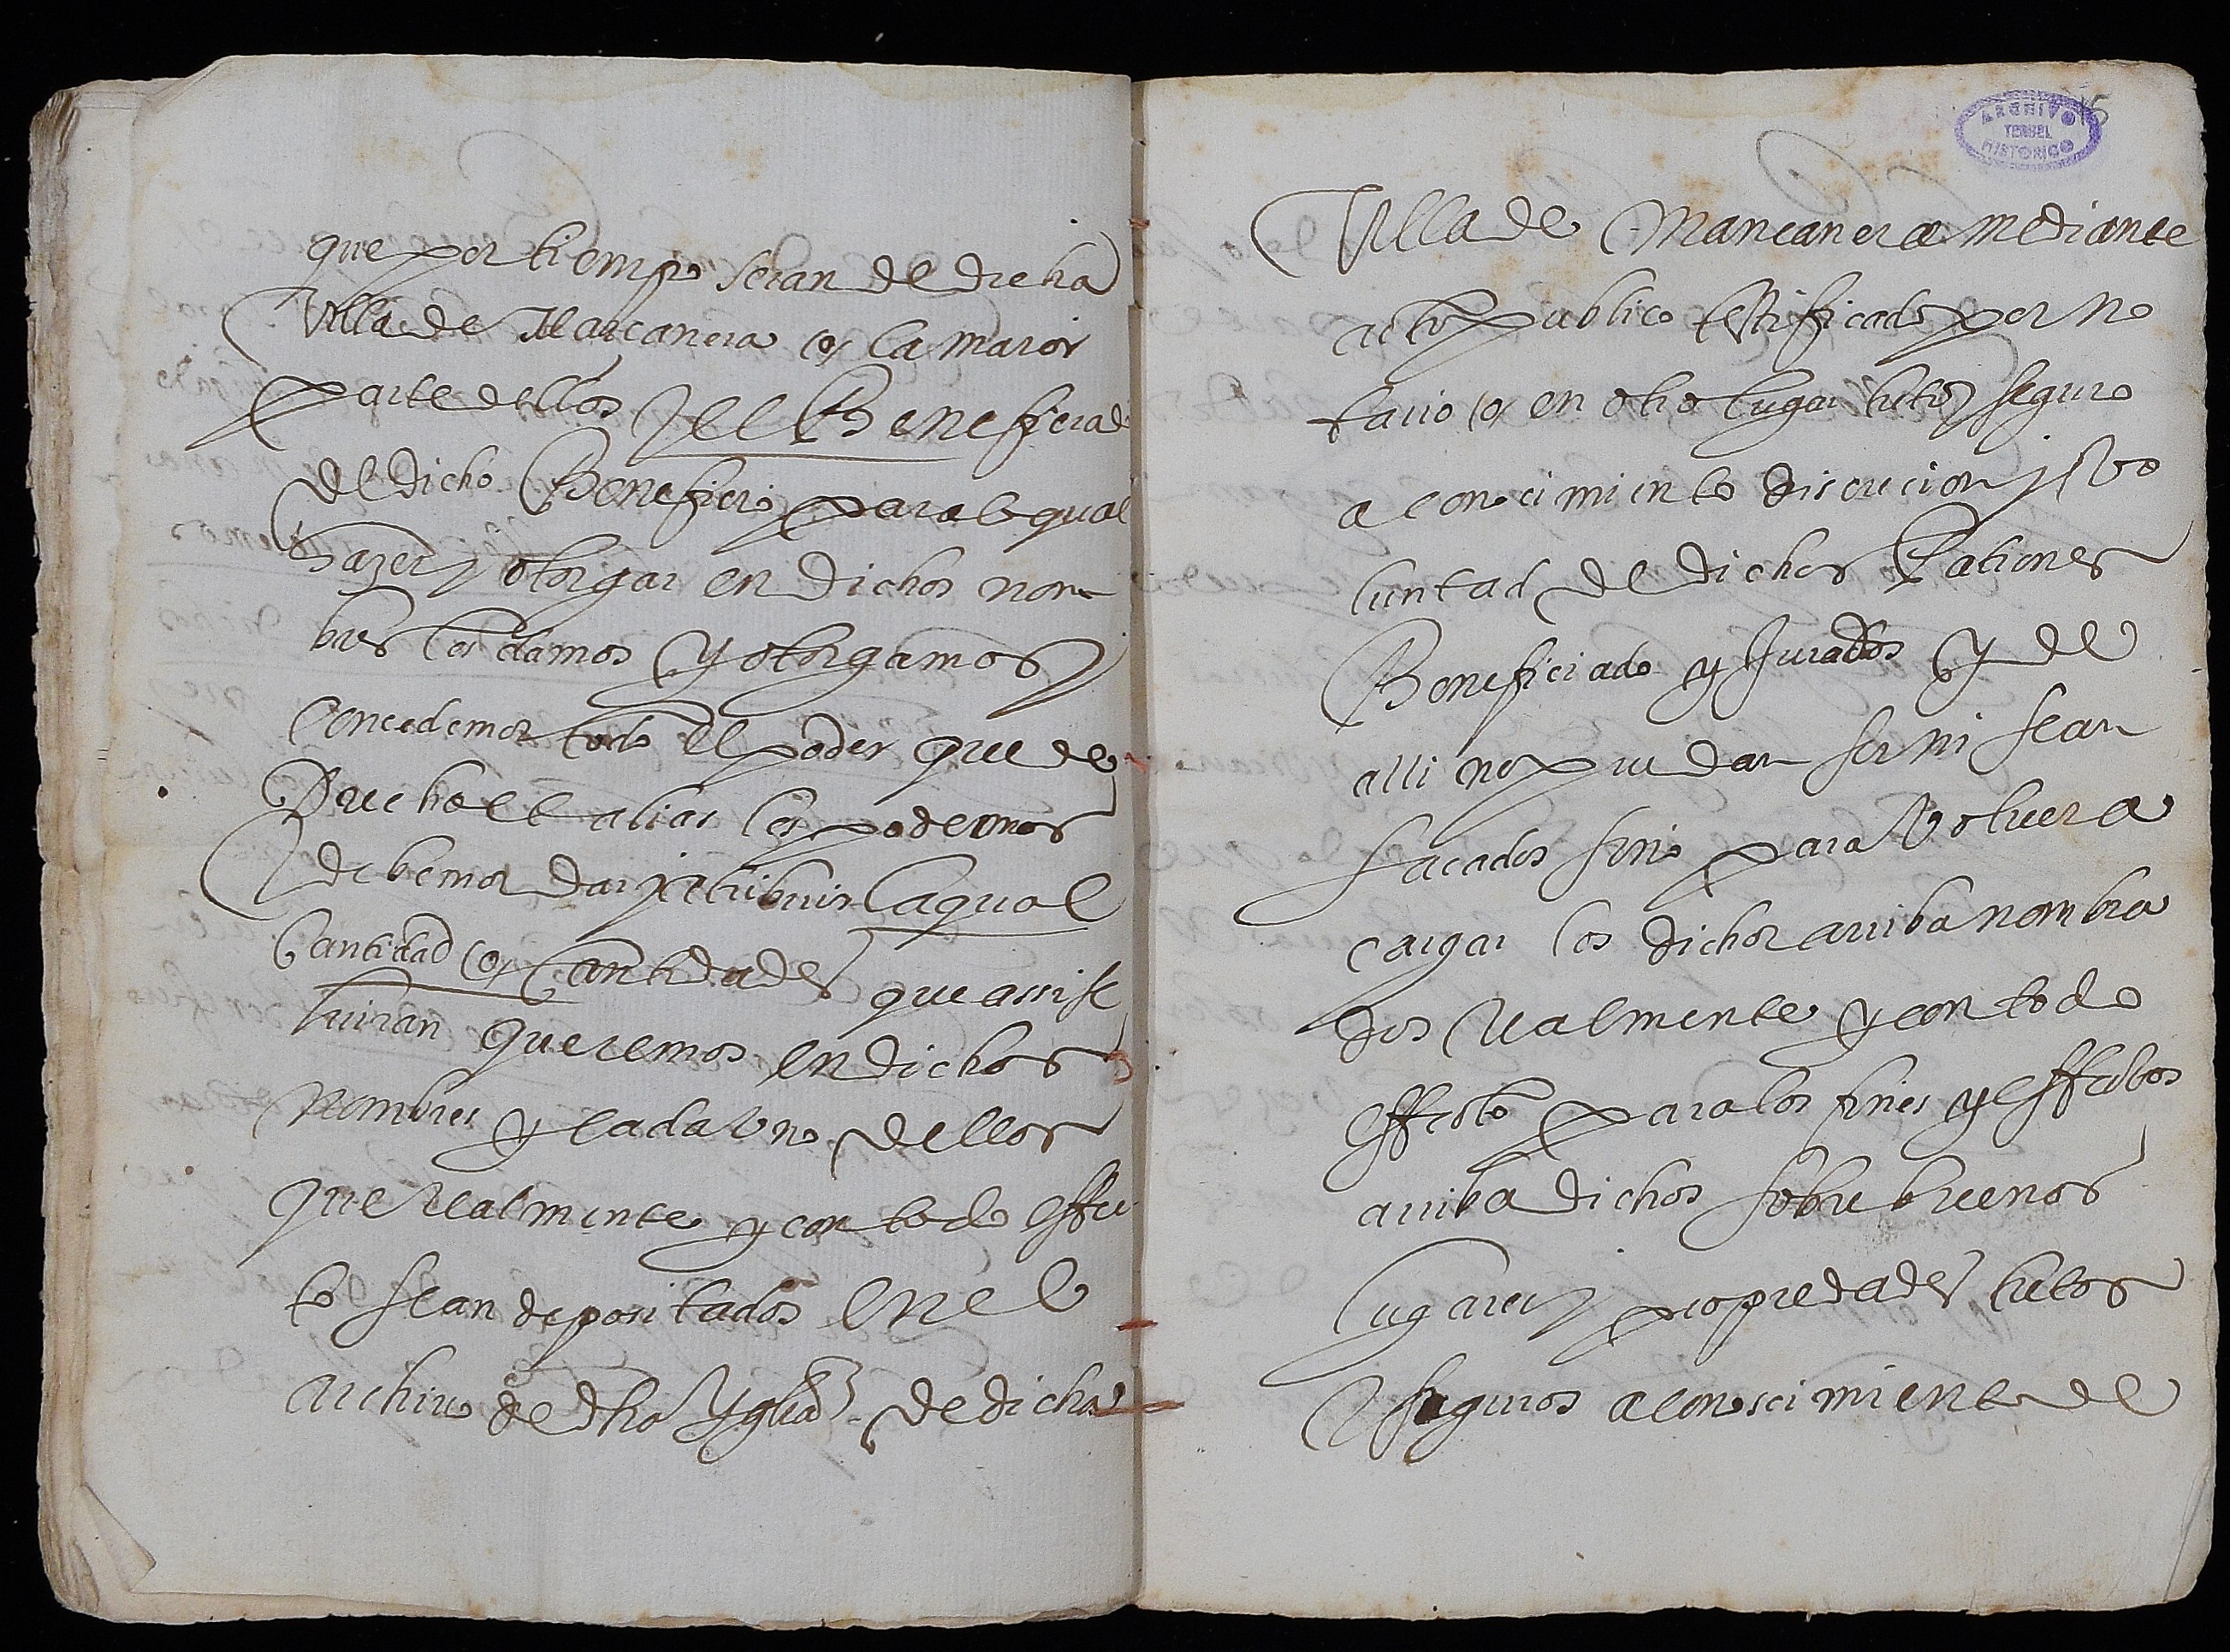 que por tiempo seran de dicha
Villa de Mancanera o, la maior
parte dellos y el Beneficiad
del dicho Beneficio para lo qual
hazer y otorgar en dichos nom
bres les damos y otorgamos y
concedemos todo el poder que de
Drecho et alias les podemos
y debemos dar y atribuir La qual
Cantidad o, Cantidades que assi se
luiran queremos en dichos
Nombres y cada Uno dellos
que realmente y con todo effec
to sean depositados en el
archiu de dha Yglia de dicha
ARCHIVO
TERUEL
HISTORICO
Villa de Mancanera mediante
acto publico testificado por no
tario o, en otro lugar tuto y seguro
a conocimiento discrecion y Vo
luntad del dichos Patrones
Beneficiado y Jurados y de
alli no puedan ser ni sean
sacados sino para Voluer a
cargar los dichos arriba nombra
dos realmente y con todo
effecto para los fines y effectos
arriba dichos sobre buenos
lugares y propiedades tutos
y seguros a conoscimiento de